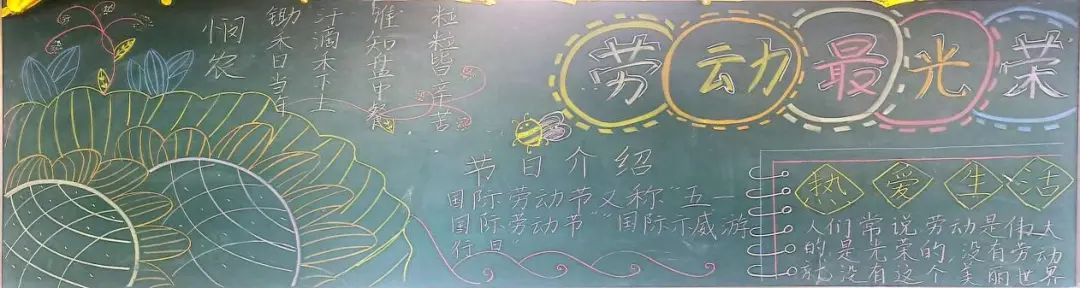 劳动最光荣
悯农
锄禾日当午
汗滴禾下土
谁知盘中餐
粒粒皆辛苦
节日介绍
国际劳动节又称"五一
国际劳动节""国际示威游
行日"
热爱生活
人们常说劳动是伟大
的,是光荣的,没有劳动
就没有这个美丽世界